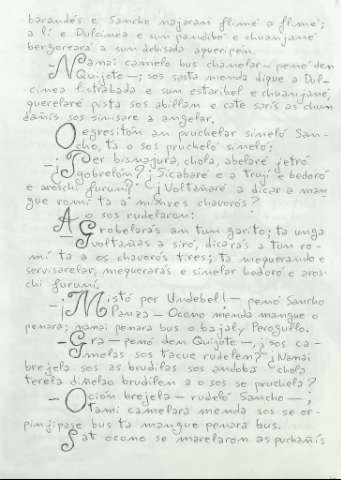 barandés e Sancho najaran flimé a flimé;
a lí e Dulcinea e sum pandibó e chuanjané
berzoreará a sum debisada aqueripén.
—Nanai camelo bus chanelar— penó den
Quijote—; sos sasta menda dique a Dul-
cinea listrabada e sum estaribel e chuanjané,
querelaré pista sos abillam e cote sarís as chum
dañís sos sinisare a angelar.
Ogresitón am pruchelar sineló San-
cho, ta o sos prucheló sineló:
—¡Ter bisnajura, chola, abelaré jetró
¿gobrelóm? ¿Sicabaré e a truji e bedoró
e aroschi furuní? ¿Voltañaré a dicar a man-
gue romí ta a minres chavorós?
A o sos rudelarom:
—Grobelarás am tum garito; ta unga
voltañas a siró, dicarás a tum ro-
mí ta a os chavorós tires; ta mequerando e
servisarelar, mequerarás e sinelar bedoró e aros-
chi furuní.
—¡Mistó per Undebel!— penó Sancho
Panza— Ocono menda mangue o
penara; nanai penara bus o bajalý Perogullo.
—Gra— penó den Quijote—, ¿sos ca-
melas sos tacue rudelen? ¿Nanai
brejela sos as brudilas sos andoba chola
terela dinelao brudilen a o sos se pruchela?
—Oción brejela— rudeló Sancho—;
tami camelara menda sos se or-
pinjipase bus ta mangue penara bus.
Sat ocono se marelarom as puchañís